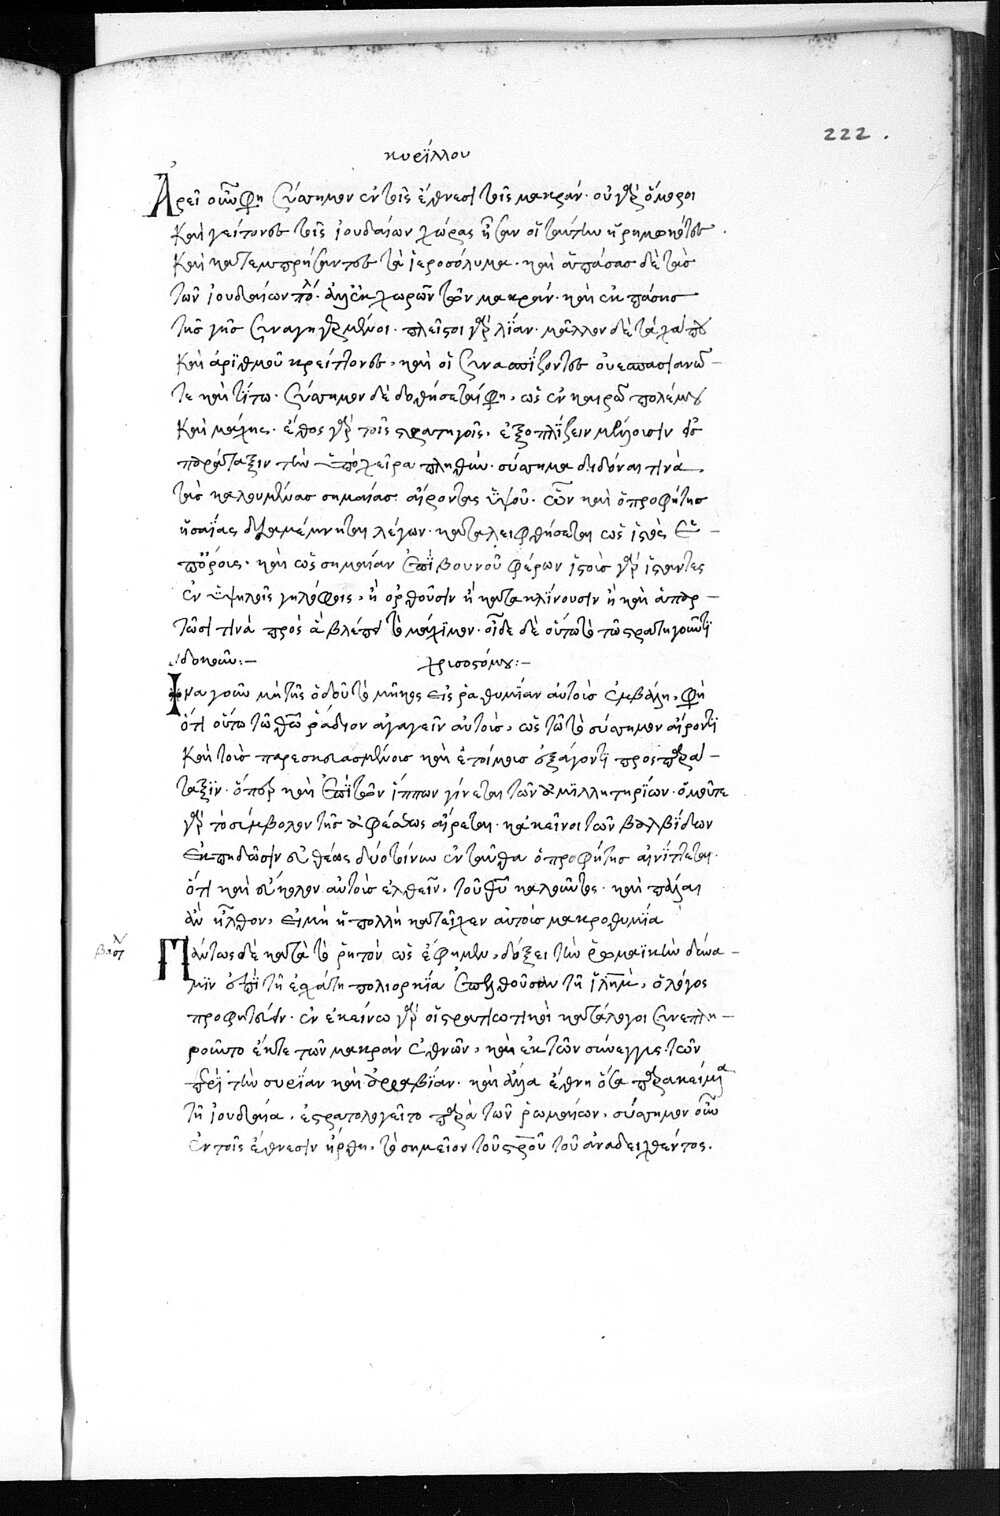 222.
κυρίλλου
Ἀρεῖ οὖν φη σύσσημον ἐν τοῖς ἔθνεσι τοῖς μακράν· οὐ γὰρ ὅμοροι
καὶ γείτονες τῆς ἰουδαίων χώρας ἦσαν οἱ ταύτην ἠρημωκότες
καὶ κατεμπρήσαντες τὰ ἱεροσόλυμα· καὶ ἁπάσας δὲ τὰς
τῶν ἰουδαίων πό· ἀλλ' ἐκ χωρῶν τῶν μακράν· καὶ ἐκ πάσης
τῆς γῆς συναγηγερμένοι· πλεῖστοι γὰρ λίαν· μᾶλλον δὲ τάχα που
καὶ ἀριθμοῦ κρείττονες, καὶ οἱ συνασπίζοντες οὐεσπασιανῶ
τε καὶ τίτω· σύσσημον δὲ δοθήσεται φη, ὡς ἐν καιρῶ πολέμου
καὶ μάχης· ἔθος γὰρ τοῖς στρατηγοῖς, ἐξοπλίζειν μέλλουσιν εἰς
παράταξιν τὴν ὑπὸ χεῖρα πληθὺν· σύσσημα διδόναι τινὰ,
τὰς καλουμένας σημαίας αἴροντας ὑψοῦ· ὧν καὶ ὁ προφήτης
ἠσαΐας διαμέμνηται λέγων· καταλειφθήσεται ὡς ἱστὸς ἐ
π' ὄρους· καὶ ὡς σημαίαν ἐπὶ βουνοῦ φέρων· ἱστοὶς γὰρ ἱστάντες
ἐν ὑψηλοῖς γηλόφοις, ἢ ὀρθοῦσιν ἢ κατακλίνουσιν ἢ καὶ ἀπορ
τῶσι τινὰ πρὸς ἃ βλέπει τὸ μάχιμον· οἶδε δὲ οὕτω τὸ τῶ στρατηγοῦντι
δοκοῦν:
χρυσοστόμου:
Ἵνα γοῦν μὴ τῆς ὁδοῦ τὸ μῆκος εἰς ῥαθυμίαν αὐτοὺς ἐμβάλη, φη
ὅτι οὕτω τῶ θεῶ ῥάδιον ἀγαγεῖν αὐτοὺς, ὡς τῶ τὸ σύσσημον αἴροντι
καὶ τοὺς παρεσκευασμένους καὶ ἑτοίμους ἐξάγοντι πρὸς παρά
ταξιν· ὅπερ καὶ ἐπὶ τῶν ἵππων γίνεται τῶν ἁμιλλητηρίων· ὁμοῦ τε
γὰρ τὸ σύμβολον τῆς ἀφέσεως αἴρεται· κἀκεῖνοι τῶν βαλβίδων
ἐκπηδῶσιν εὐθέως δύο τοίνυν ἐνταῦθα ὁ προφήτης αἰνίττεται·
ὅτι καὶ εὔκολον αὐτοὺς ἐλθεῖν, τοῦ θεοῦ καλοῦντος· καὶ πάλαι
ἂν ἦλθον, εἰ μὴ ἡ πολλὴ κατεῖχεν αὐτοὺς μακροθυμία
Πάντως δὲ κατὰ τὸ ῥητὸν ὡς ἔφημεν, δόξει τὴν ῥωμαϊκὴν δύνα
μιν ἐπὶ τῆ ἐσχάτη πολιορκία ἐπελθοῦσαν τῆ ἰλημ, ὁ λόγος
προφητεύειν· ἐν ἐκείνω γὰρ οἱ στρατιωτικοὶ κατάλογοι συνεπλη
ροῦντο ἔκ τε τῶν μακρὰν ἐθνῶν, καὶ ἐκ τῶν σύνεγγυς τῶν
περὶ τὴν συρίαν καὶ ἀρραβίαν· καὶ ἄλλα ἔθνη ὅσα παρακείμενα
τῆ ἰουδαία, ἐστρατολογεῖτο παρὰ τῶν ῥωμαίων, σύσσημον οὖν
ἐν τοῖς ἔθνεσιν ἤρθη, τὸ σημεῖον τοῦ σταυροῦ τοῦ ἀναδειχθέντος.